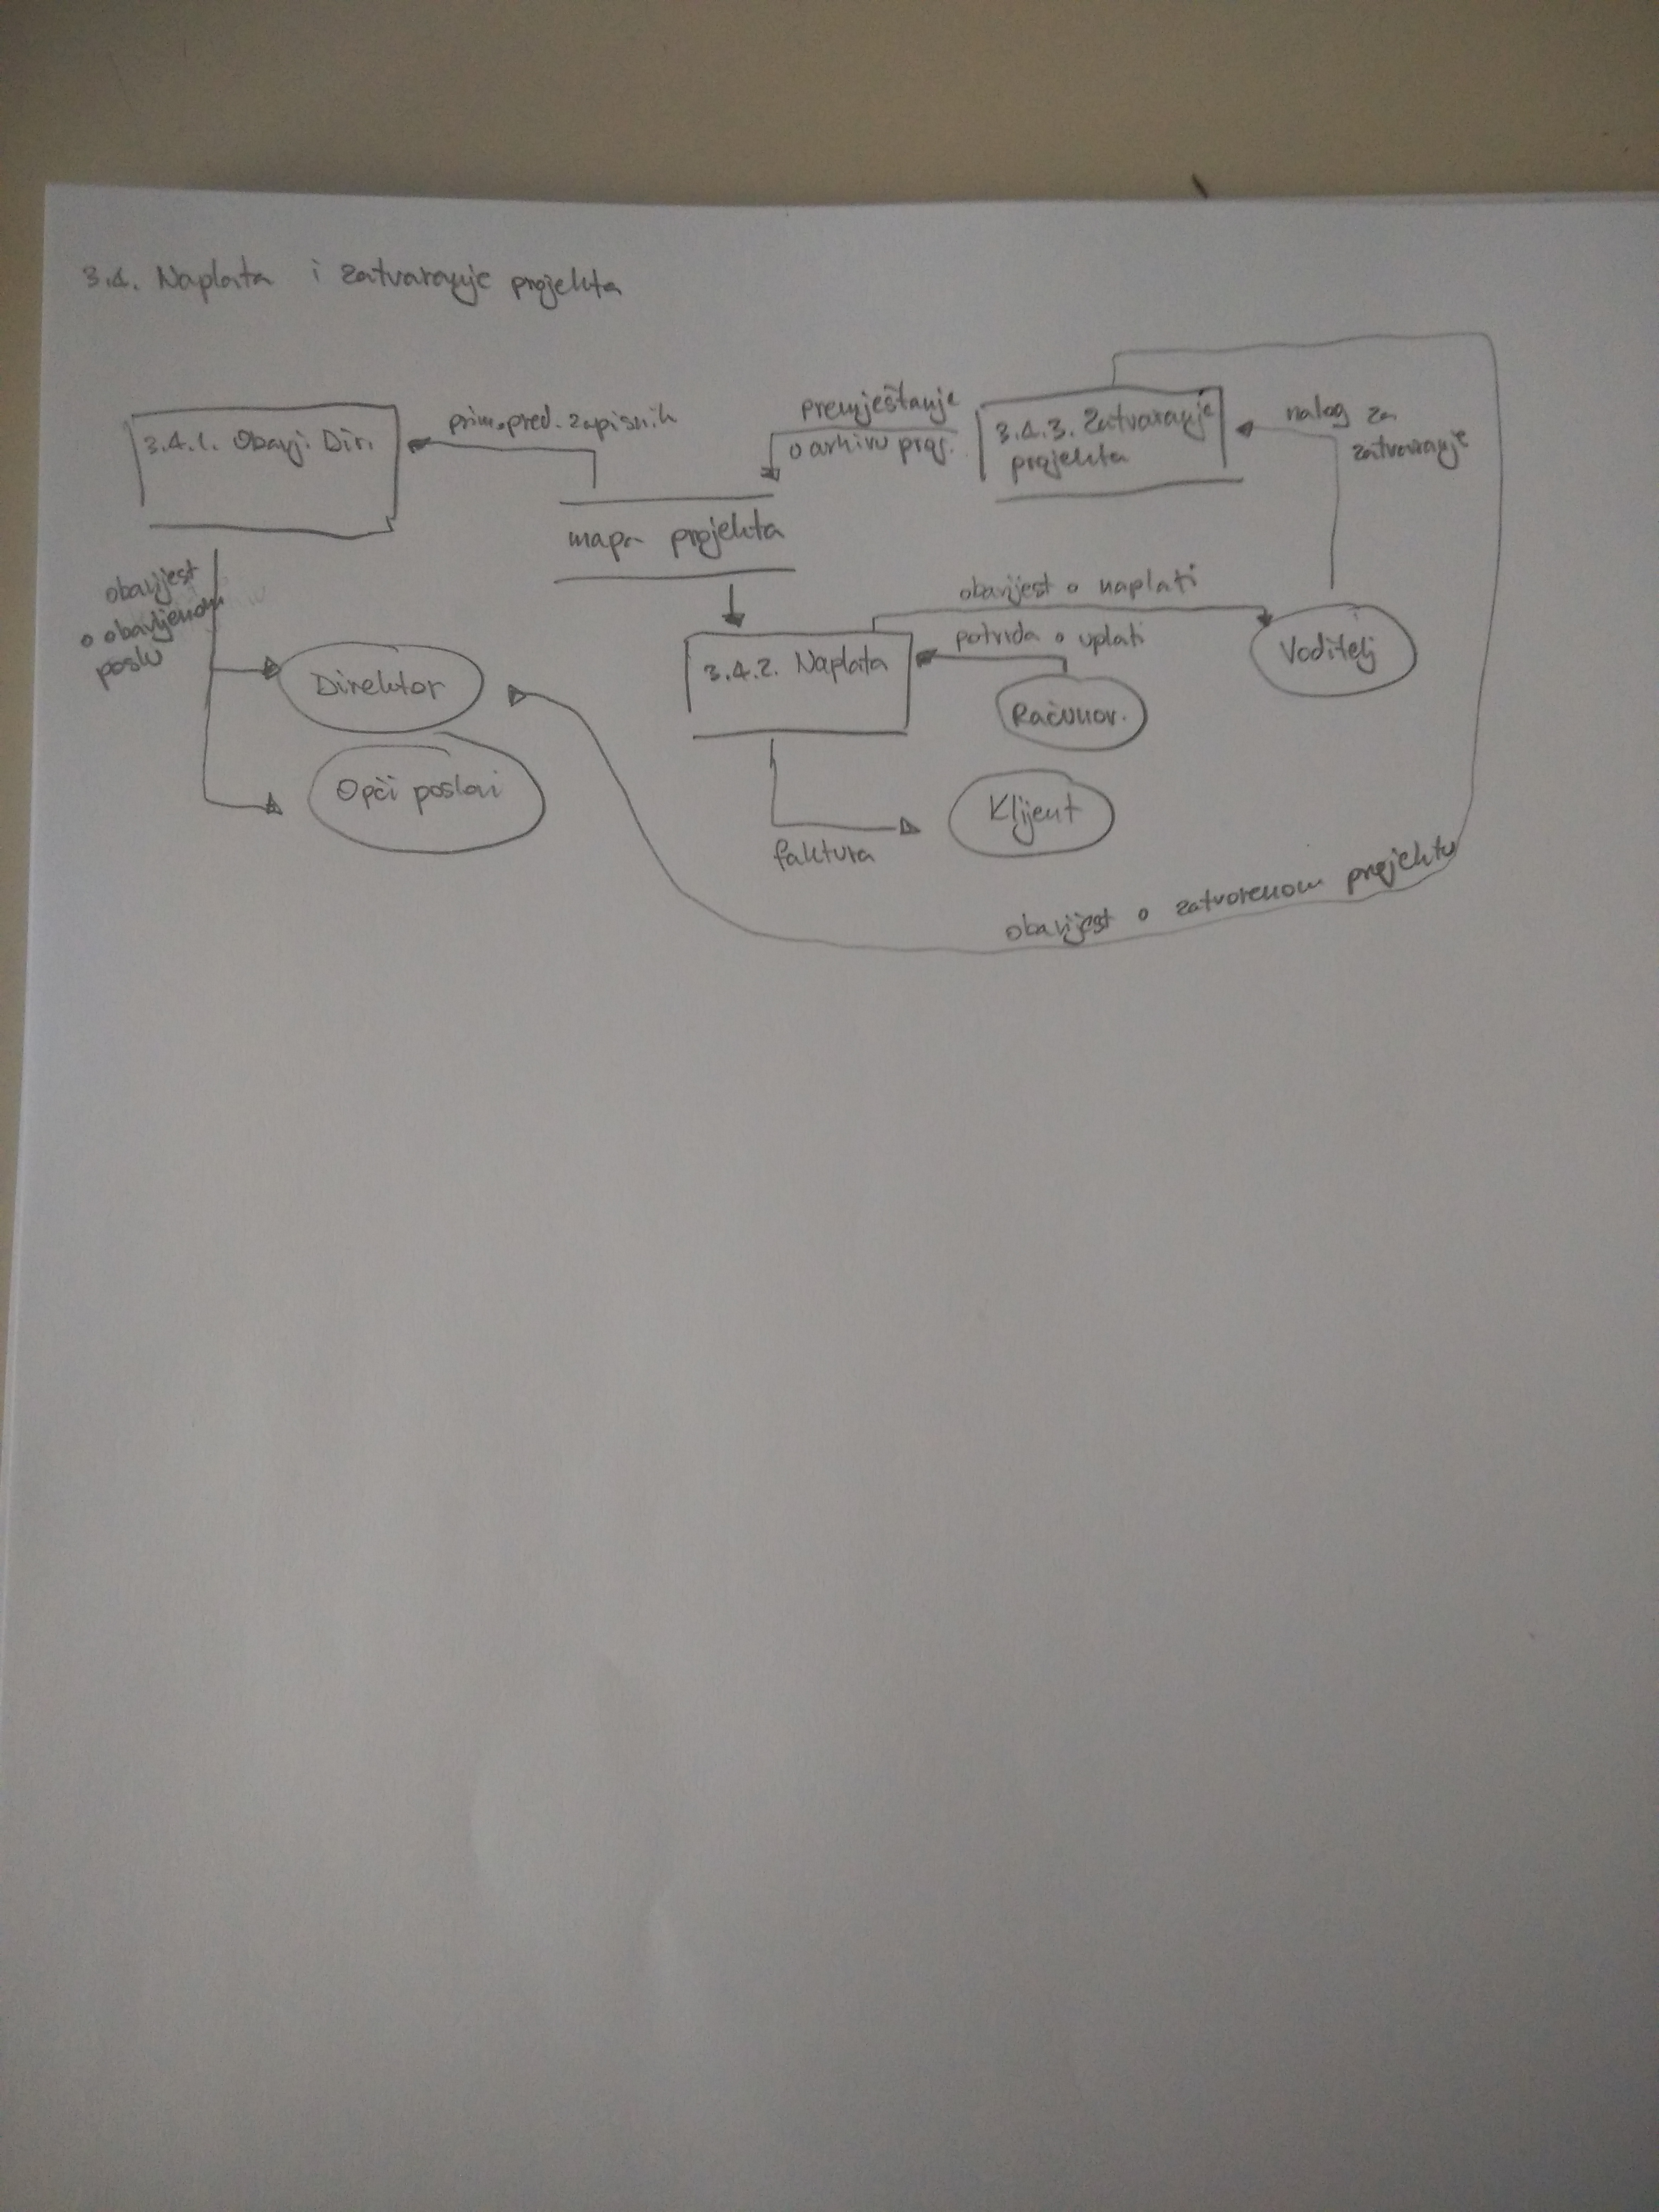 3.4. Naplata i zatvaranje projekta
3.4.1. Obavj. Dir.
prim.pred. zapisnik
premještanje
o arhivu proj.
3.4.3. Zatvaranje
projekta
nalog za
zatvaranje
mapa projekta
obavijest
o obavljenom
poslu
obavijest o naplati
potvrda o uplati
3.4.2. Naplata
Voditelj
Direktor
Računov.
Opći poslovi
Klijent
faktura
obavijest o zatvorenom projektu